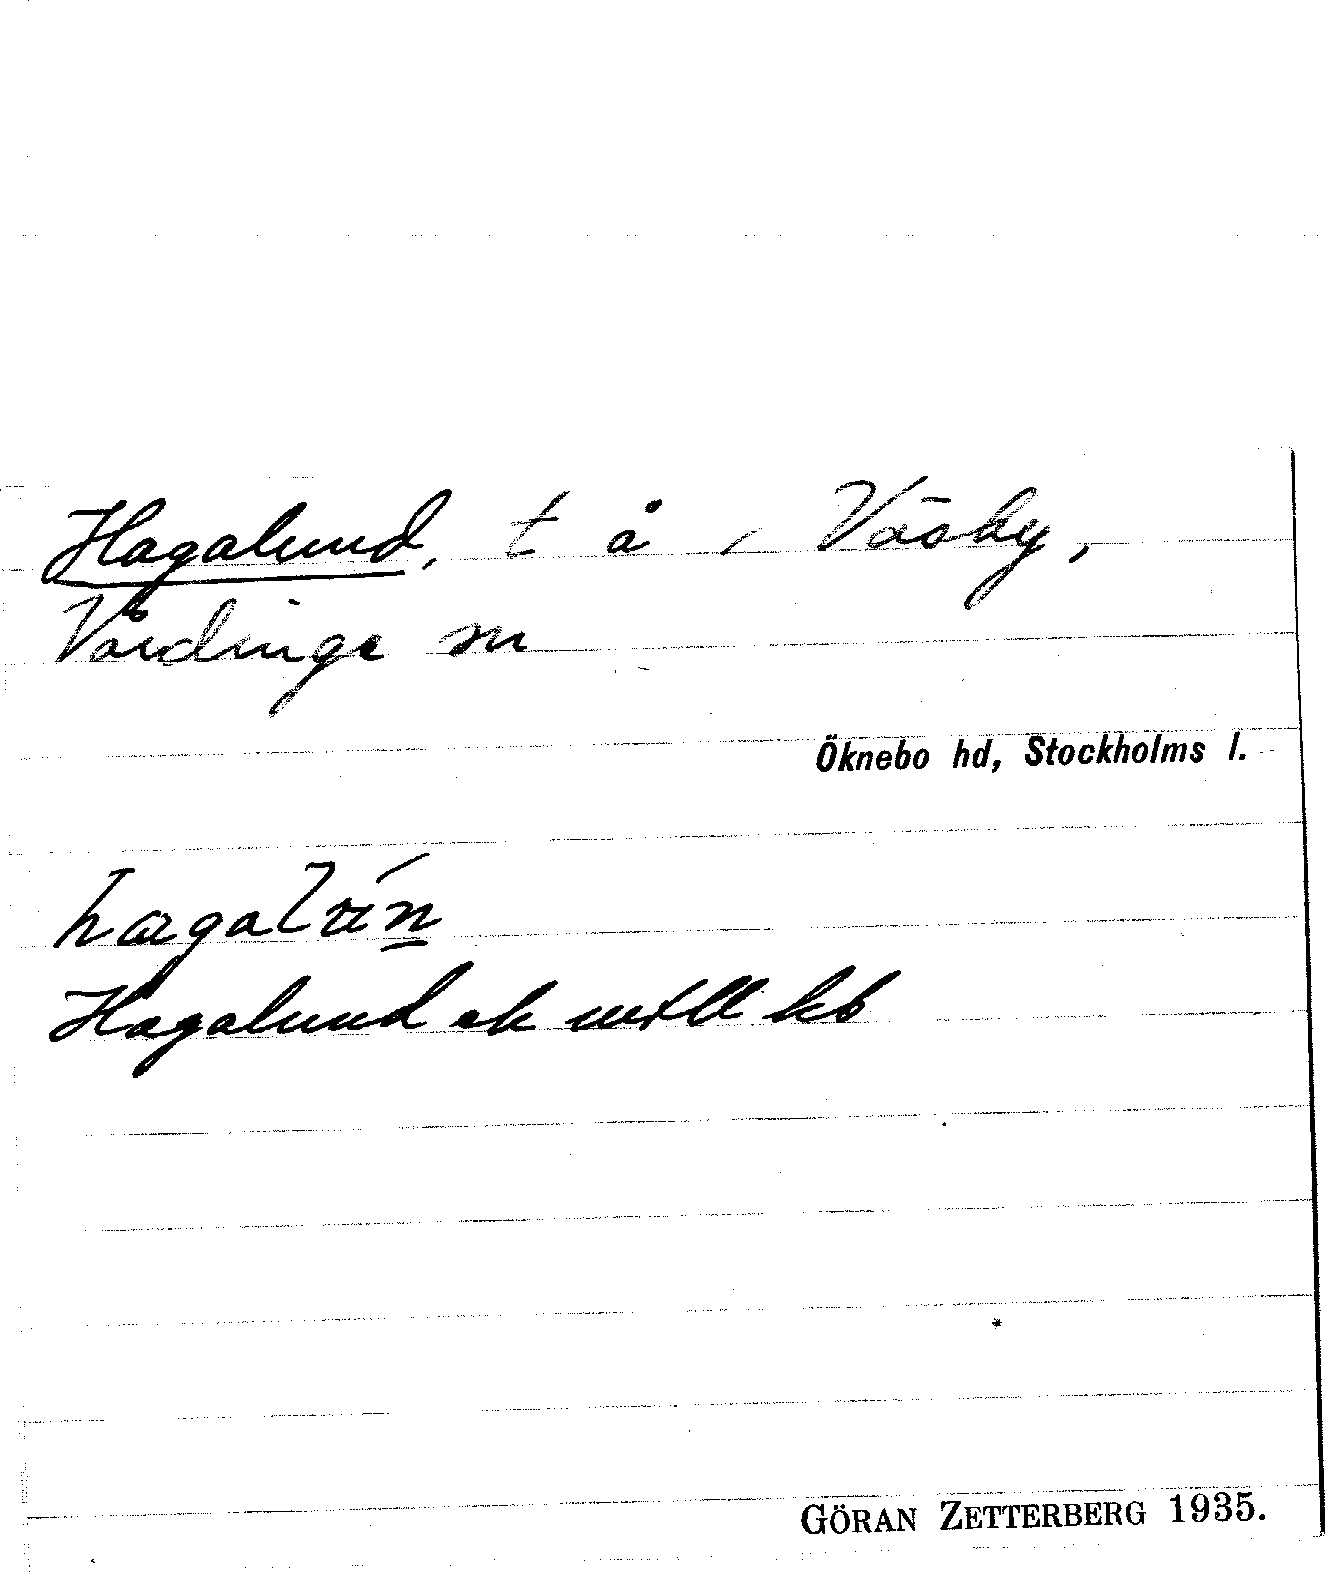 Hagalund, t å , Väsby,
Vårdinge sn
Öknebo hd, Stockholms l.
Hagalund ek
GÖRAN ZETTERBERG 1935.